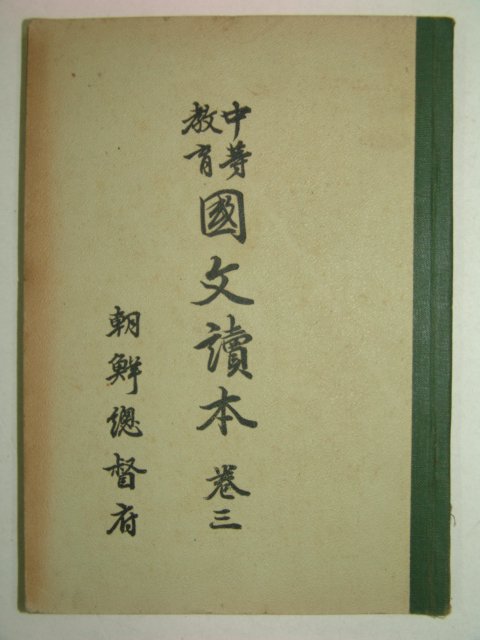 中等
教育
國文讀本 卷三
朝鮮總督府